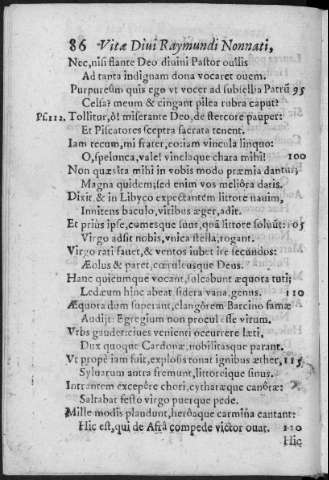 86 Vitæ Divi Raymundi Nonnati,
Nec, nisi flante Deo diuini Pastor ouilis
Ad tanta indignam dona vocaret ovem.
Purpureum quis ego vt vocer ad subsellia Patrũ 95
Celsa? meum & cingant pilea rubra caput?
Ps. 112. Tollitor, ô! miserante Deo, de stercore pauper:
Et Piscatores sceptra sacrata tenent.
Iam tecum, mi frater, eo: iam vincula linquo:
O, spelunca, vale! vinclaque chara mihi! 100
Non quæsita mihi in vobis modo præmia dantur,
Magna quidem, sed enim vos meliôra datis.
Dixit & in Libyco expectantem littore nauim,
Innitens baculo, viribus æger, adit.
Et priùs ipse, comesque sunt, quã littore solvũt: 105
Virgo adsit nobis, vnica stella, rogant.
Virgo rati fauet, & ventos iubet ire secundos:
Æolus & paret, cœruleusque Deus.
Hanc quicumque vocant, sulcabunt æquora tuti;
Ledæum hinc abeat sidera vana genus. 110
Æquora dum superant, clangôrem Barcino famæ
Audijt: Egregium non procul esse virum.
Vrbs gaudet: ciues venienti occurrere læti,
Dux quoque Cardonæ, nobilitasque parant.
Vt propè iam fuit, explosis tonat ignibus æther, 115
Syluarum antra fremunt, littoreique sinus.
Intrantem excepêre chori, cytharæque canôræ:
Saltabat festo virgo puerque pede.
Mille modis plaudunt, herôaque carmĩna cantant:
Hic est, qui de Afrâ compede victor ouat. 120
Hic